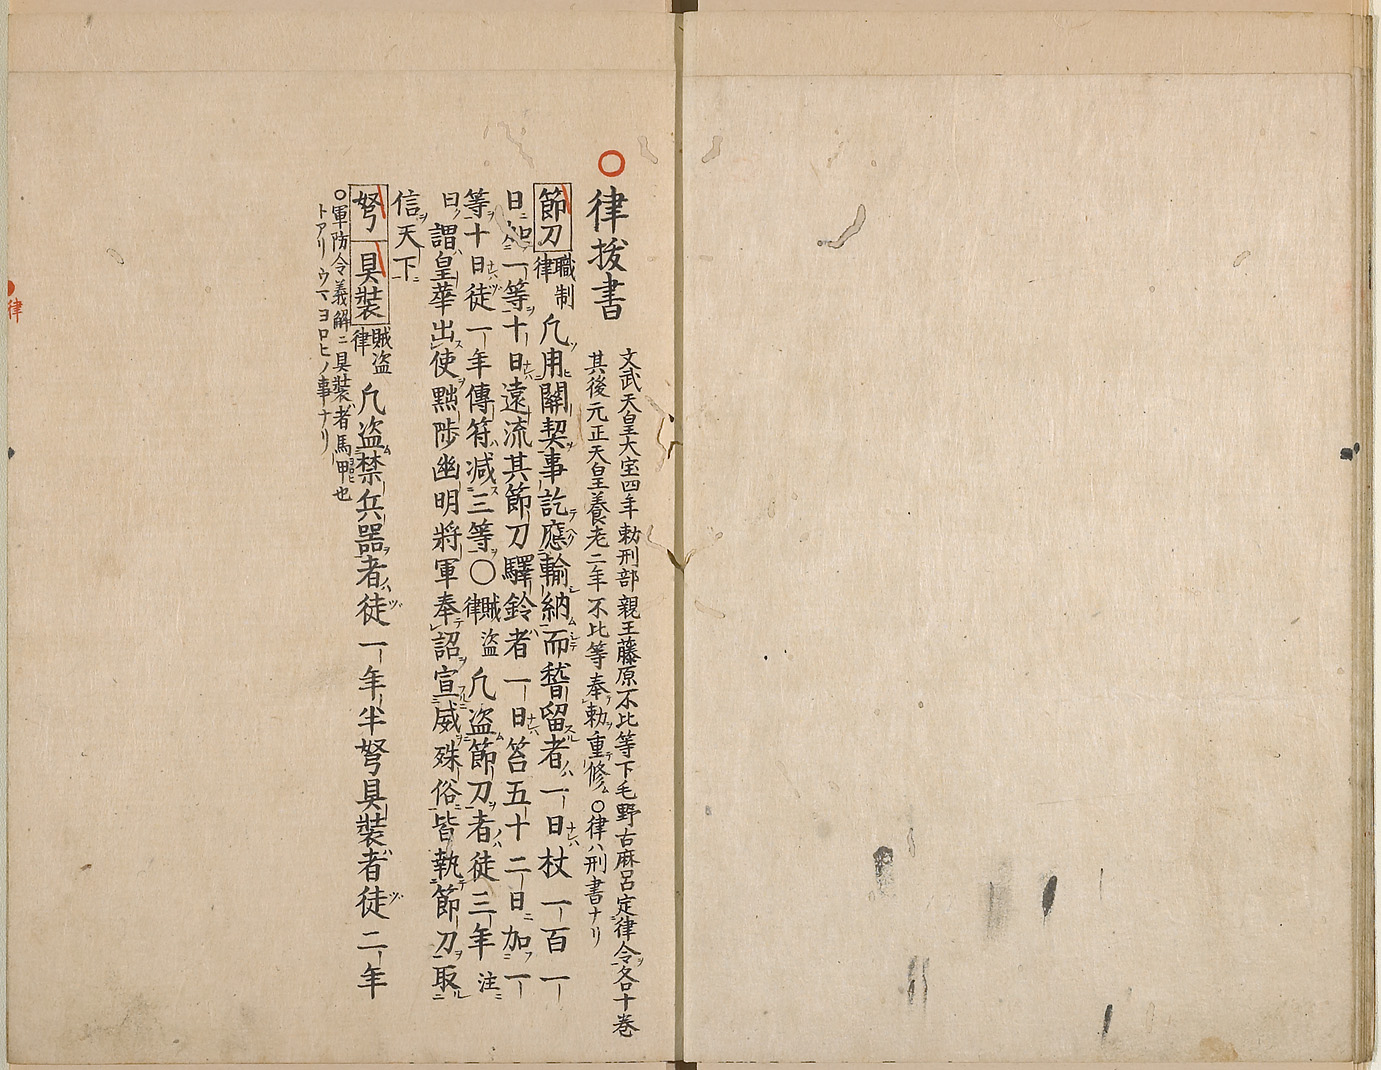 〇律抜書
文武天皇大宝四年勅刑部親王藤原不比等下毛野古麻呂定律令各十巻
其後元正天皇養老二年不比等奉勅重修〇律ハ刑書ナリ
節刀 職制律 凡用關契事訖應輸納而稽留者一日杖一百一
日加一等十日遠流其節刀驛鈴者一日笞五十二日加一
等十日徒一年傳符減三等〇賊盗律凡盗節刀者徒三年注
曰謂皇華出使黜陟幽明將軍奉詔宣威殊俗皆執節刀取
信天下
弩 具装 賊盗律 凡盗禁兵器者徒一年半弩具装者徒二年
〇軍防令義解ニ具装者馬甲也
トアリウマヨロヒノ事ナリ
律